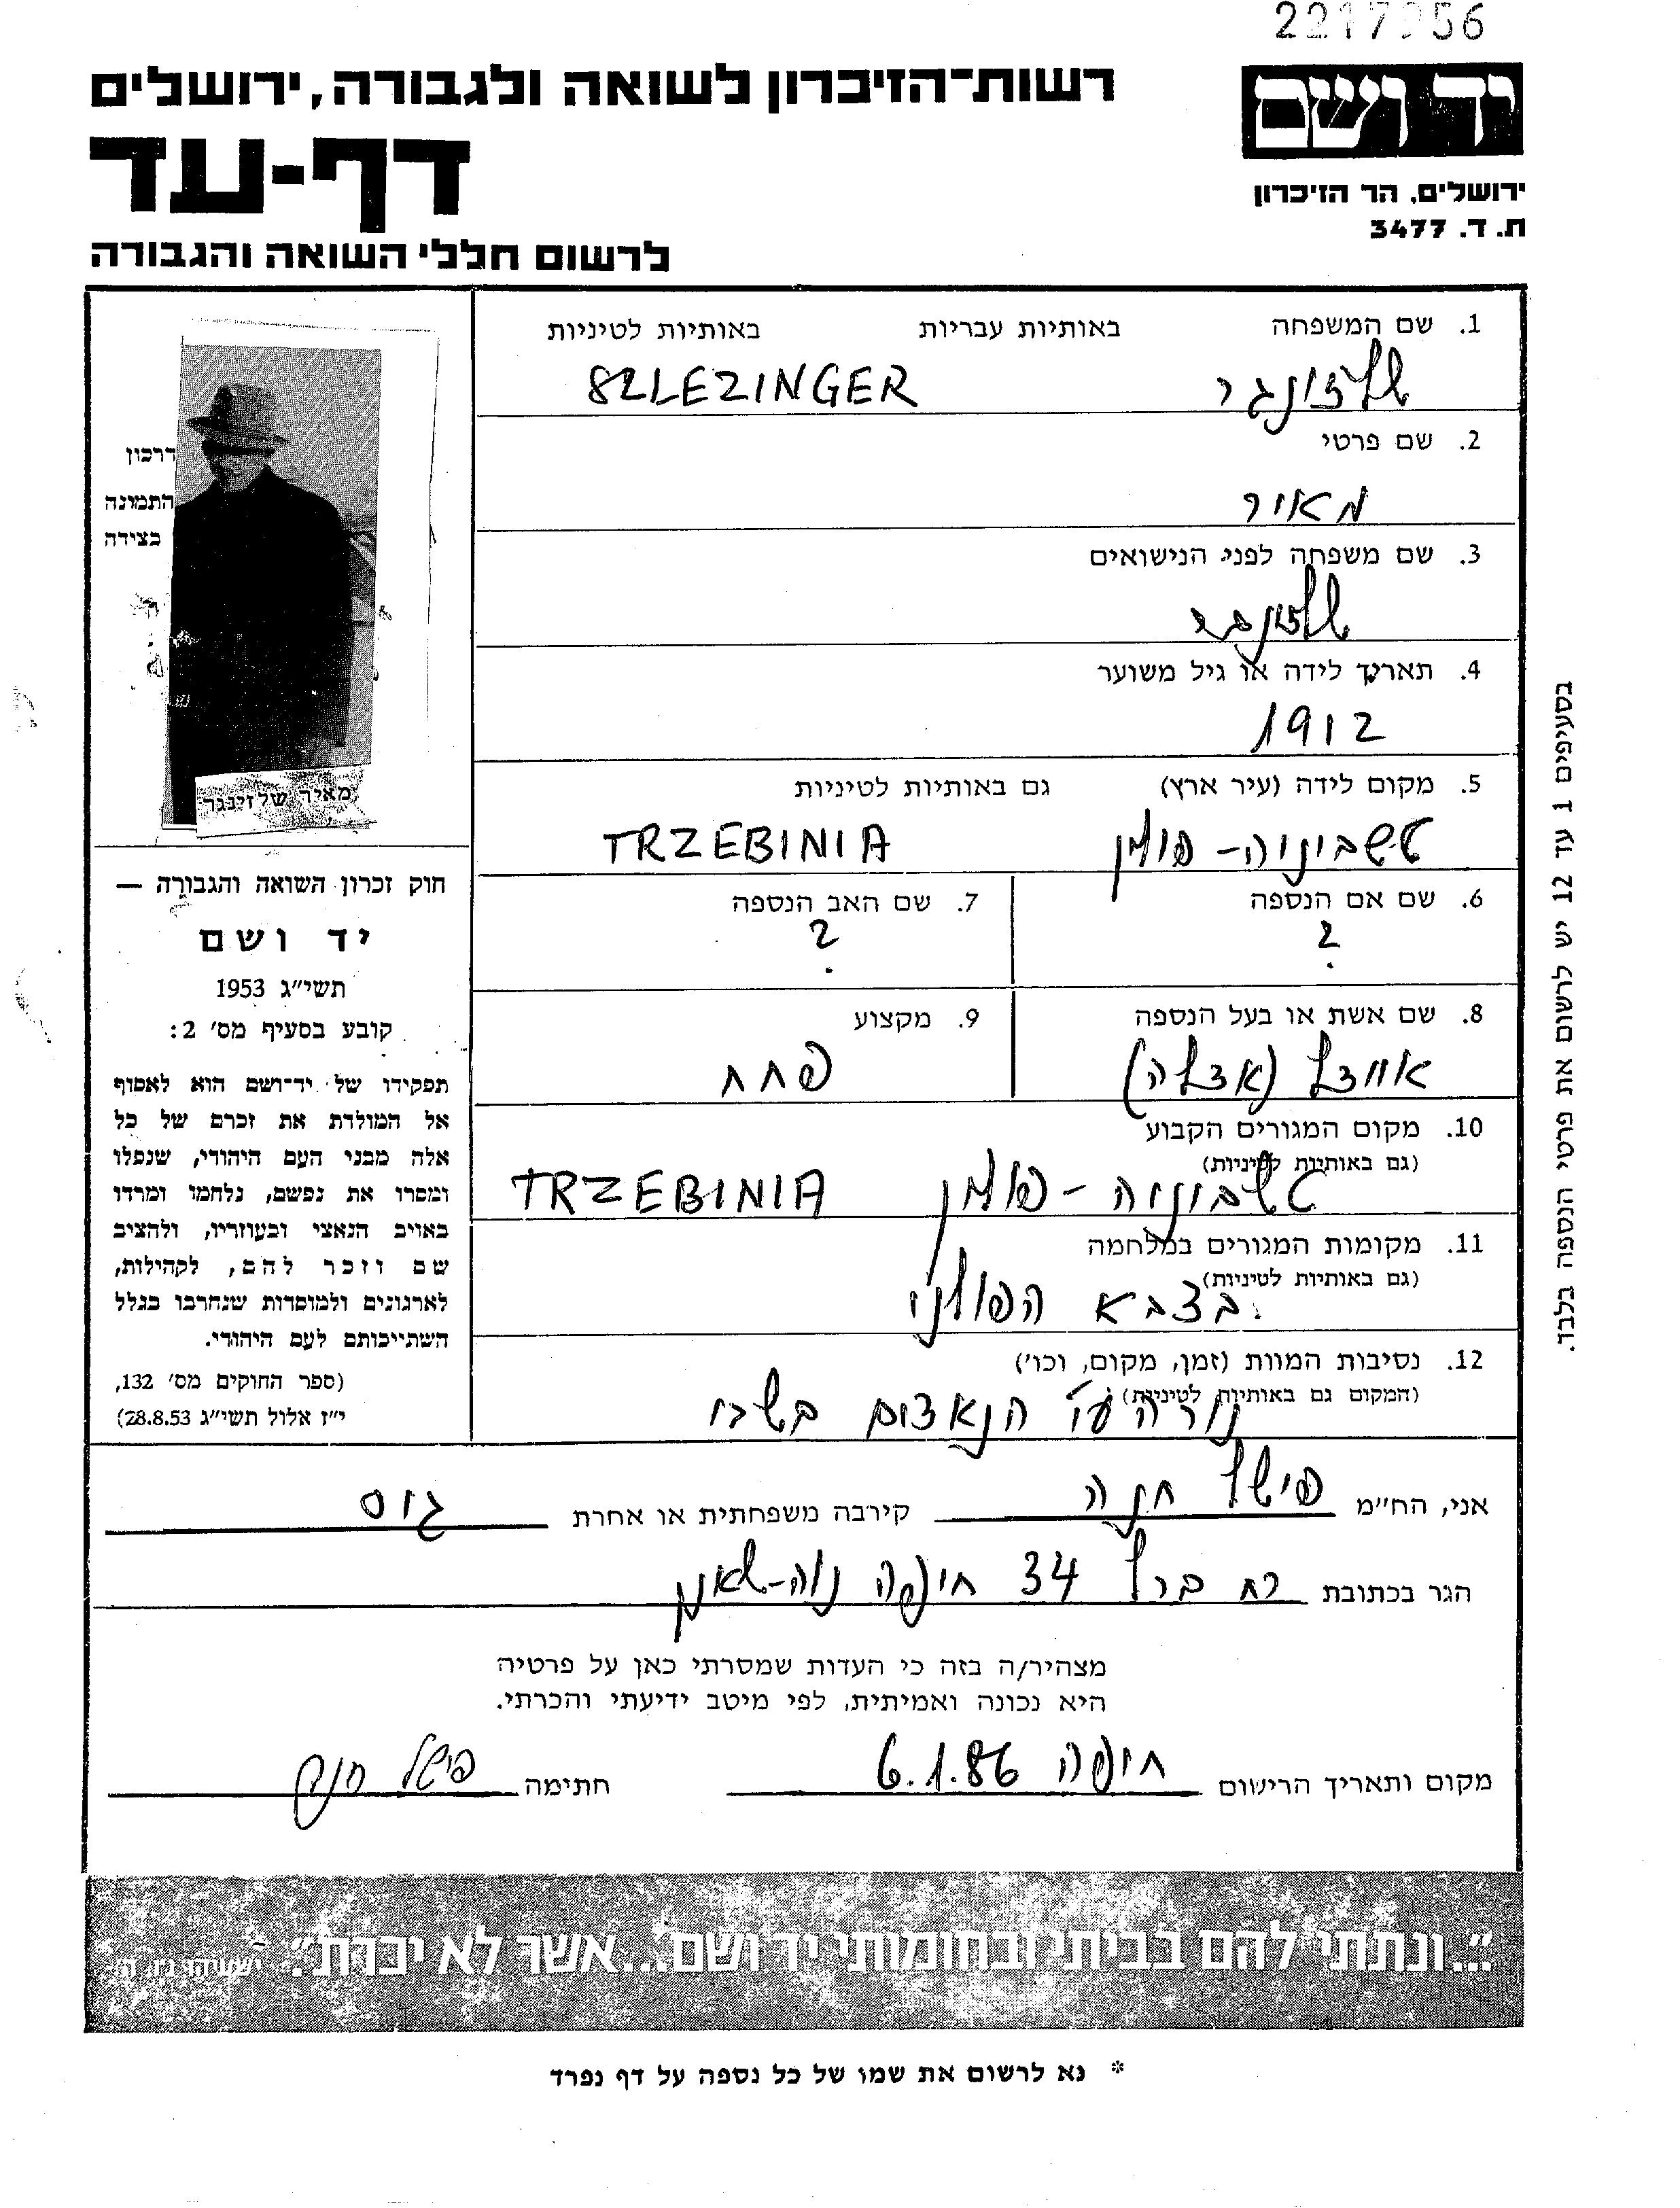 רשות־הזיכרון לשואה ולגבורה, ירושלים
יד ושם
דף-עד
ירושלים, הר הזיכרון
ת. ד. 3477
לרשום חללי השואה והגבורה
1. שם המשפחה באותיות עבריות באותיות לטיניות
שלזינגר SZLEZINGER
2. שם פרטי
מאיר
3. שם משפחה לפני הנישואים
שלזינגר
4. תאריך לידה או גיל משוער
1912
5. מקום לידה (עיר ארץ) גם באותיות לטיניות
טשביניה - פולין TRZEBINIA
6. שם אם הנספה
?
7. שם האב הנספה
?
8. שם אשת או בעל הנספה
(אצלה)
9. מקצוע
פחח
10. מקום המגורים הקבוע
(גם באותיות לטיניות)
טשביניה - פולין TRZEBINIA
11. מקומות המגורים במלחמה
(גם באותיות לטיניות)
בצבא הפולני
12. נסיבות המוות (זמן, מקום, וכו')
(המקום גם באותיות לטיניות)
נורה ע"י הנאצים בשבי
דרכון
התמונה
בצידה
מאיר שלזינגר
חוק זכרון השואה והגבורה —
יד ושם
תשי"ג 1953
קובע בסעיף מס' 2:
תפקידו של יד־ושם הוא לאסוף
אל המולדת את זכרם של כל
אלה מבני העם היהודי, שנפלו
ומסרו את נפשם, נלחמו ומרדו
באויב הנאצי ובעוזריו, ולהציב
שם וזכר להם, לקהילות,
לארגונים ולמוסדות שנחרבו בגלל
השתייכותם לעם היהודי.
(ספר החוקים מס' 132,
י"ז אלול תשי"ג 28.8.53)
בסעיפים 1 עד 12 יש לרשום את פרטי הנספה בלבד.
אני, הח"מ פישל חנה קירבה משפחתית או אחרת גיס
הגר בכתובת רח ברל 34 חיפה נוה-שאנן
מצהיר/ה בזה כי העדות שמסרתי כאן על פרטיה
היא נכונה ואמיתית, לפי מיטב ידיעתי והכרתי.
מקום ותאריך הרישום חיפה 6.1.86 חתימה פישל חנה
"...ונתתי להם בביתי ובחומותי יד ושם...אשר לא יכרת". ישעיהו נו, ה
* נא לרשום את שמו של כל נספה על דף נפרד